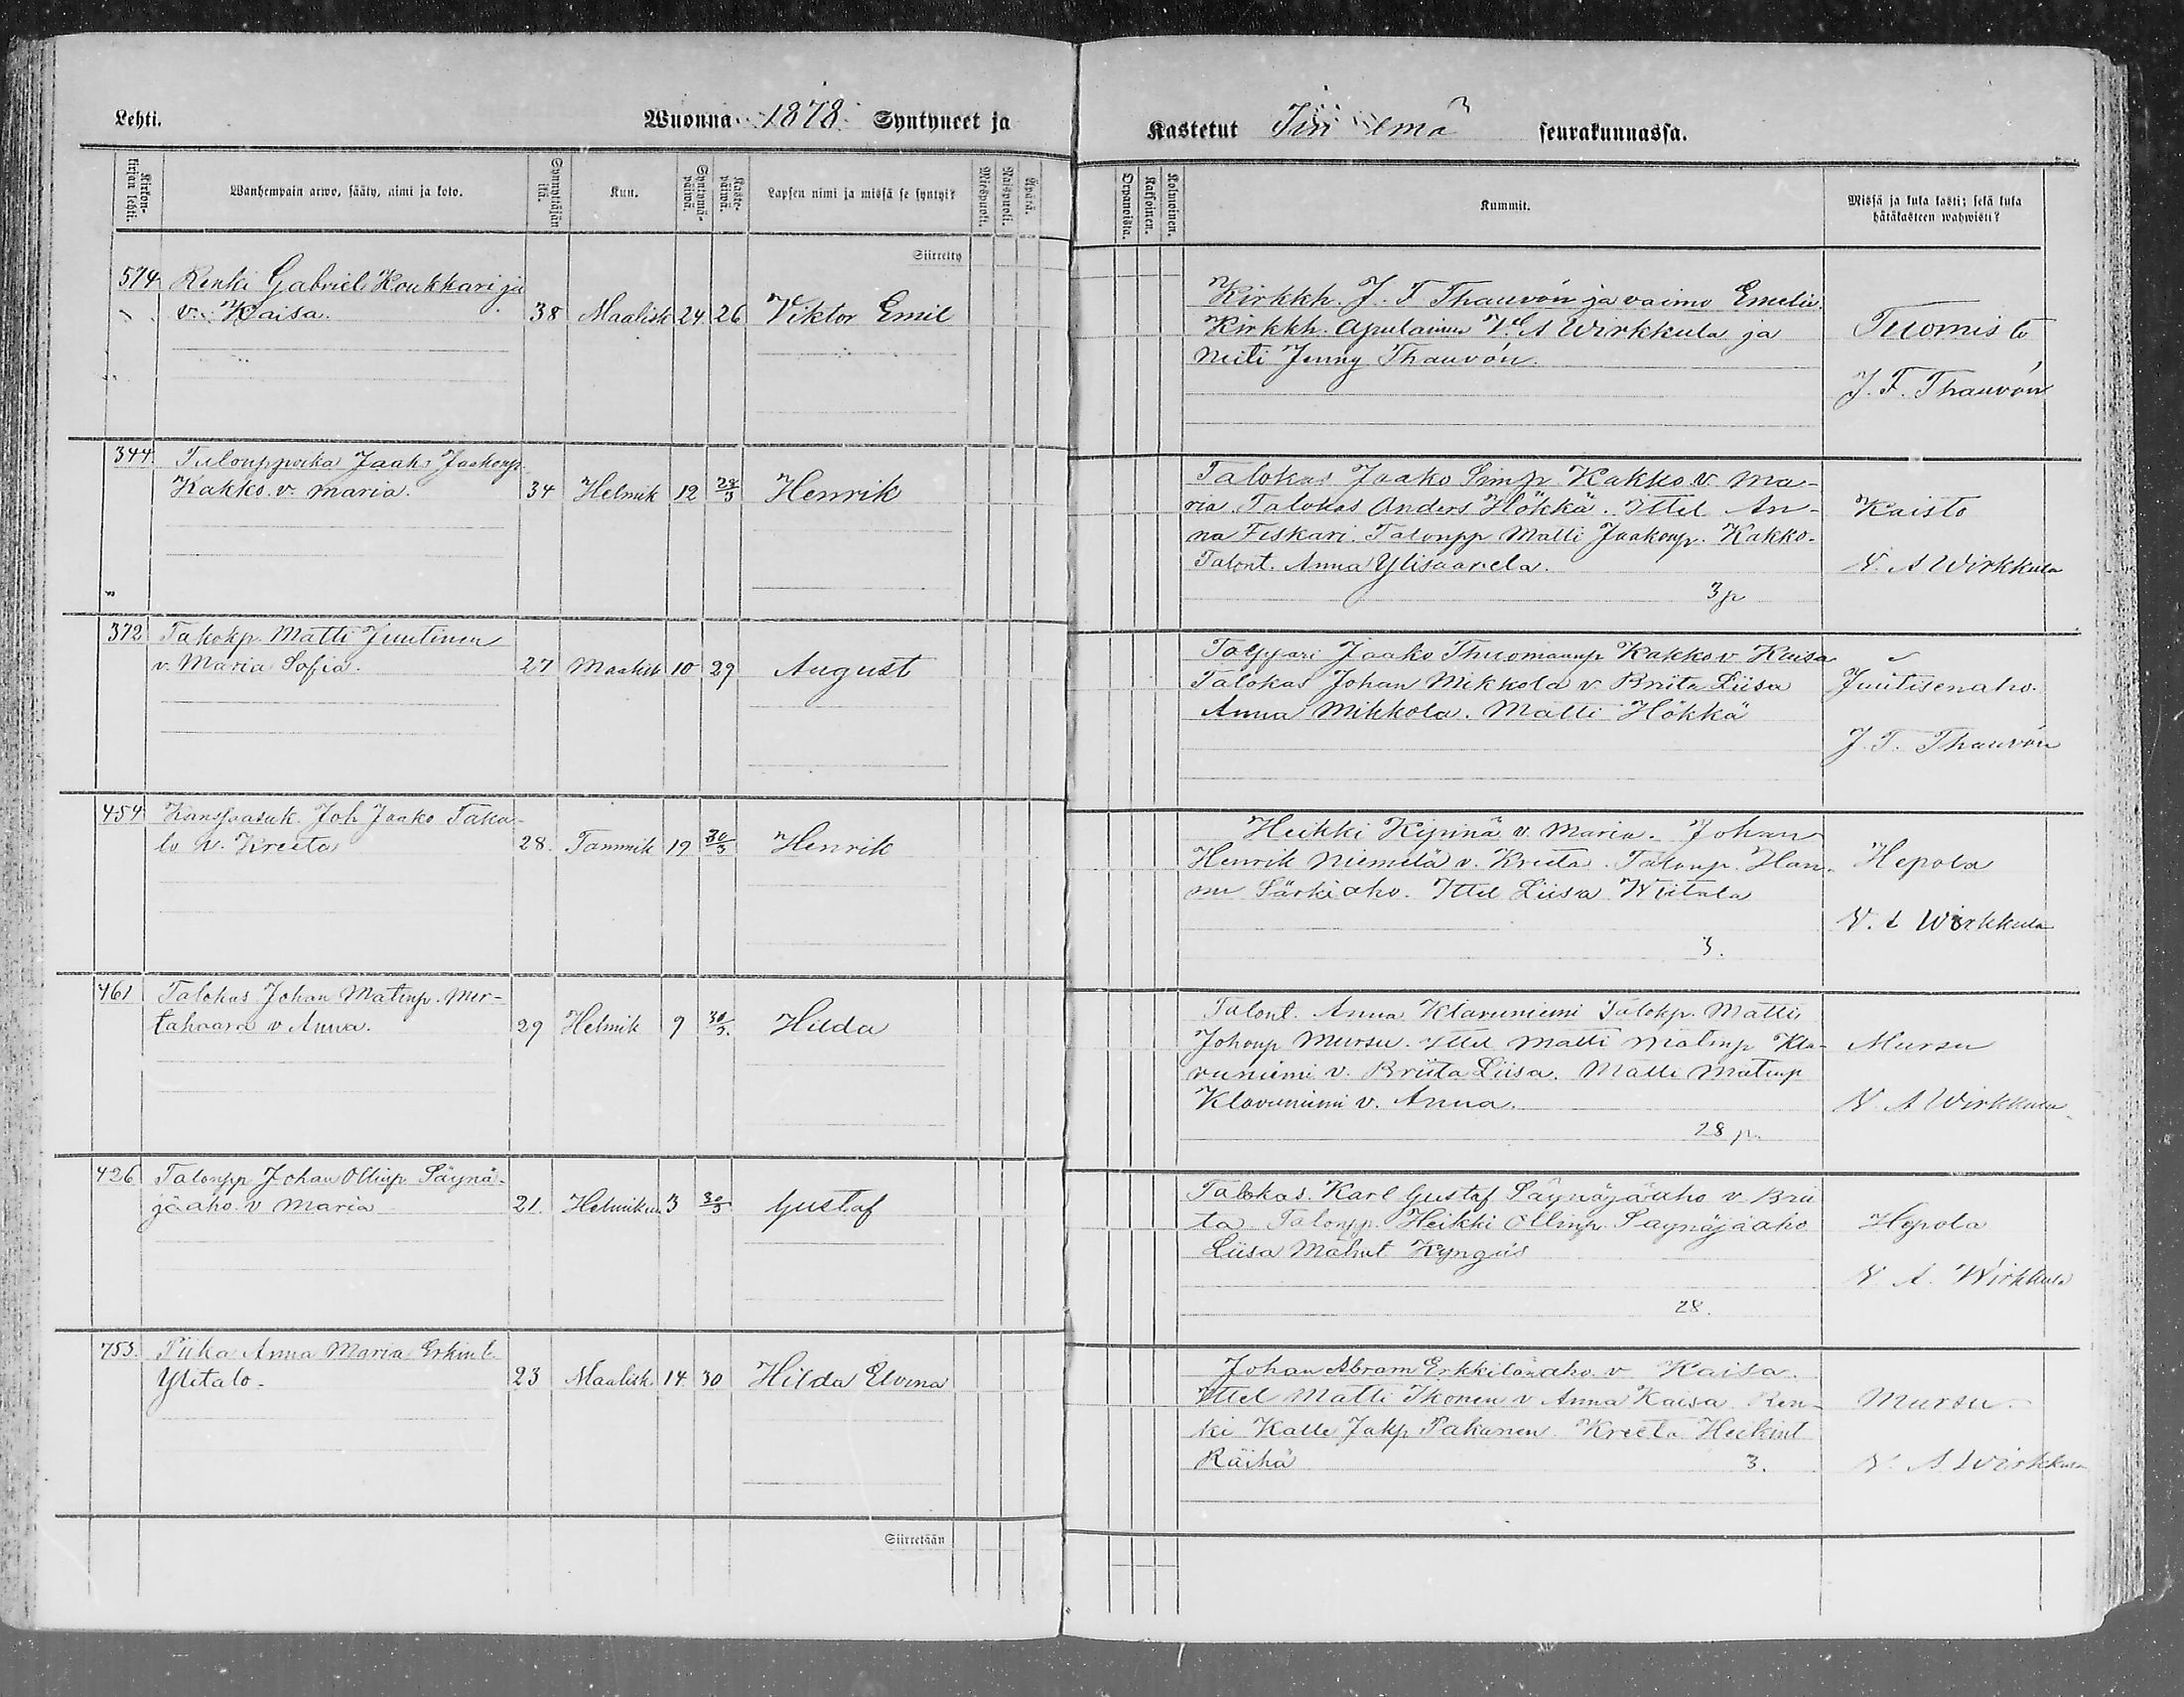 Lehti. Wuonna 1878 Syntyneet ja
Kastetut Sii emä seurakunnassa.
Kirkon-kirjan lehti.
Wanhempain arwo, sääty, nimi ja koto.
Synnyttäjän ikä.
Kuu.
Syntymä-päiwä.
Kaste-päiwä.
Lapsen nimi ja missä se syntyi?
Miespuoli.
Waimopuoli.
Äpärä.
Orpanoista.
Kaksoinen.
Kolmoinen.
Kummit.
Missä ja kuka kasti; sekä kuka
hätäkasteen wahwisti?
Siirretty
574 Renki Gabriel Koukkari ja
v. Kaisa. 38 Maalisk 24 26 Viktor Emil
Kirkkh. J. F. Thauvón ja vaimo Emelie.
Kirkkh. apulainen V. A Wirkkula ja
neiti Jenny Thauvón.
Tuomisto
J. F. Thauvón
344 Talonppoika Jaako Jaakonp.
Kakko v. maria. 34 Helmik 12 28/3 Henrik
Talokas Jaako Simp. Kakko v. Ma-
ria. Talokas Anders Hökkä. Ittel An-
na Fiskari. Talonpp Matti Jaakonp. Kakko-
Talont. Anna Ylisaarela.
3 p
Kaisto
V. A Wirkkula
372 Talokp. Matti Juutinen
v. Maria Sofia. 27 Maalisk 10 29 August
Jaako Thuomaanp Kakko v Kaisa
Talokas Johan Mikkola v. Briita Liisa
Anna Mikkola. Matti Hökkä
Juutisenaho.
J. F. Thauvón
454 Joh Jaako Taka-
lo v. Kreeta 28. Tammik 19 30/3 Henrik
Heikki Kipinä v. Maria. Johan
Henrik Niemelä v. Kreeta. Talonp. Han-
nu Särkiaho. Ittel Liisa Wiitala
3.
Hepola
V. A Wirkkula
461 Talokas Johan Matinp. Mer-
v Anna. 29 Helmik 9 30/3. Hilda
Talont. Anna Klavuniemi Talokp. Matti
Johanp Mursu. Ittel Matti Matinp Kla-
vuniemi v. Briita Liisa. Matti Matinp
Klavuniemi v. Anna.
28 p.
Mursu
V. A Wirkkula
426 Talonpp Johan Ollinp. Säynä-
jäaho. v Maria 21. Helmikuu 3 30/3 Gustaf
Talokas. Karl Gustaf Säynäjäaho v. Brii
ta. Talonpp. Heikki Ollinp. Säynäjäaho
Liisa Kyngäs
28.
Hepola
V. A. Wirkkula
753. Piika Anna Maria Erkint.
Ylitalo. 23 Maalisk 14 30 Hilda Elvina
Johan Abram Erkkilänaho v Kaisa.
Ittel Matti Ikonen v Anna Kaisa. Ren-
ki Kalle Jakp Pakanen. Kreeta Heikint
Räihä 3.
Mursu.
V. A. Wirkkula
Siirretään